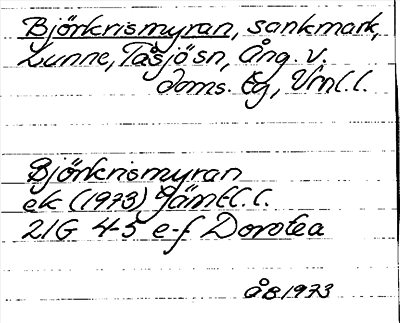 Björkrismyran, sankmark,
Lunne, Tåsjösn, Ång. v.
doms. lg, Vnl.l.
Björkrismyran
ek (1973) Jämtl.l.
21G 4-5 e-f Dorotea
ÅB 1973